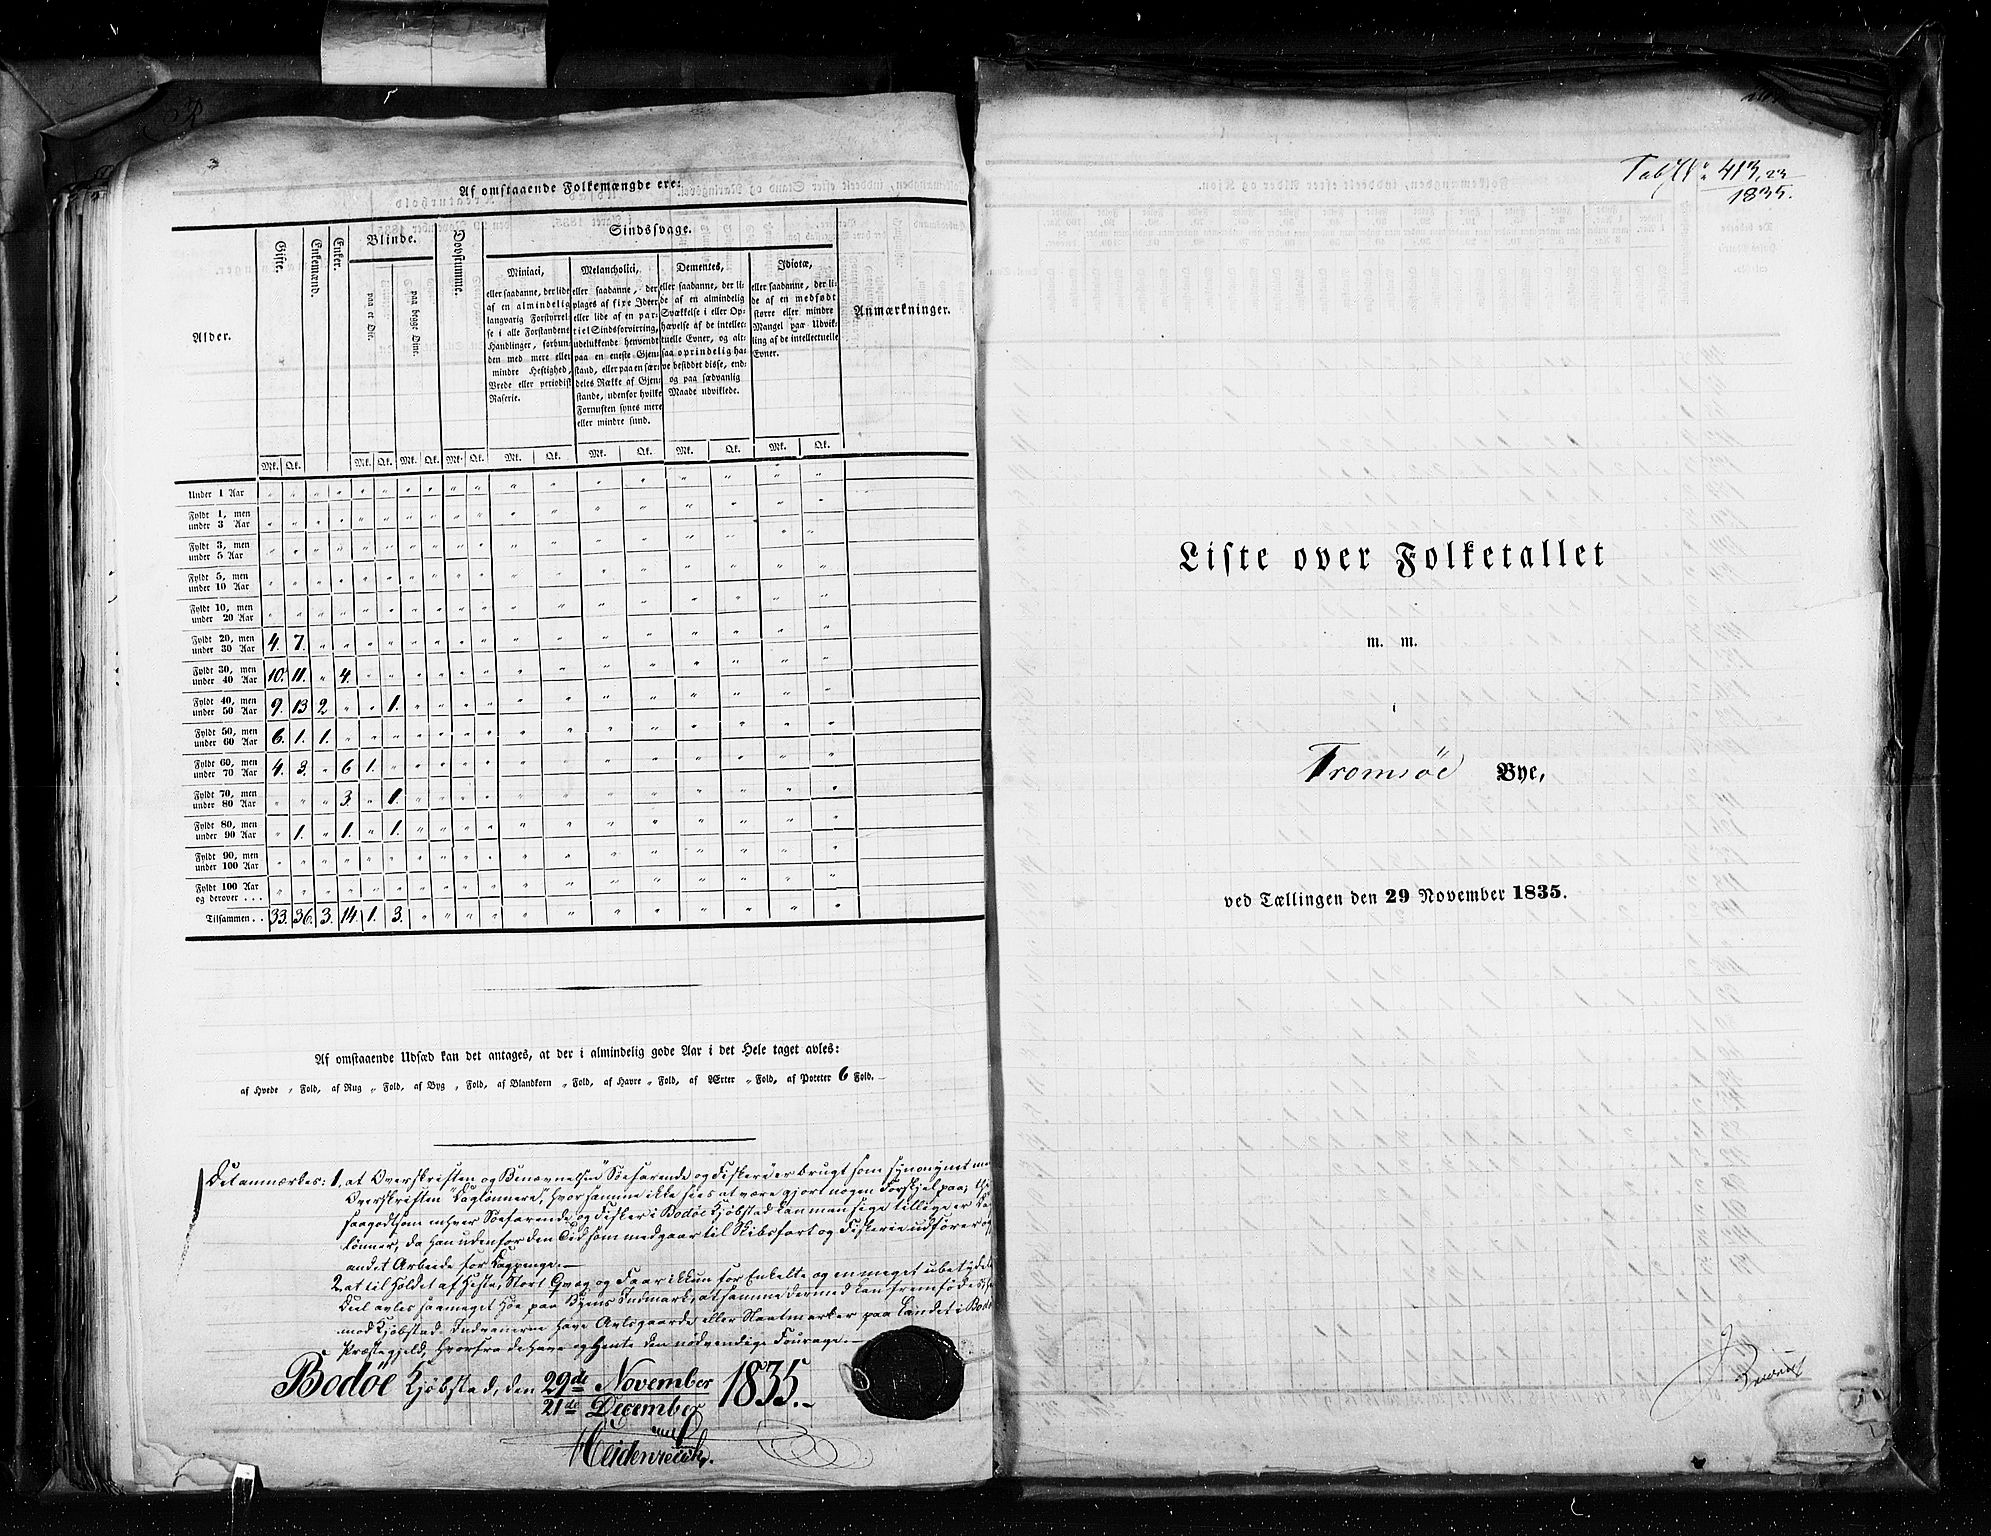 Af omstaaende Folkemængde ere:
Alder. Gifte. Enkemænd. Enker. Blinde. Døvstumme. Sindssvage. Anmærkninger.
paa et Øie. paa begge Øine.
Miniaci,
eller saadanne, der lide
af en almindelig
langvarig Forstyrrel-
se i alle Forstandens
Handlinger, forbun-
den med mere eller
mindre Heftighed,
Vrede eller periodisk
Raserie.
Melancholici,
eller saadanne, der
plages af fixe Ideer
eller lide af en par-
tiel Sindsforvirring,
udelukkende henvendt
paa en eneste Gjen-
stand, eller paa en sær-
deles Række af Gjen-
stande, udenfor hvilke
Fornuften synes mere
eller mindre sund.
Dementes,
eller saadanne, der li-
de af en almindelig
Svækkelse i eller Op-
hævelse af de intellec-
tuelle Evner, og alt-
saa oprindelig ha-
ve besiddet disse, end-
og paa sædvanlig
Maade udviklede.
Idiotæ,
eller saadanne, der li-
de af en medfødt
større eller mindre
Mangel paa Udvik-
ling af de intellectuelle
Evner.
Mk. Qk. Mk. Qk. Mk. Qk. Mk. Qk. Mk. Qk. Mk. Qk. Mk. Qk. Mk. Qk.
Under 1 Aar " " " " " " " " " " " " " " " " " "
Fyldt 1, men
under 3 Aar " " " " " " " " " " " " " " " " " "
Fyldt 3, men
under 5 Aar " " " " " " " " " " " " " " " " " "
Fyldt 5, men
under 10 Aar " " " " " " " " " " " " " " " " " "
Fyldt 10, men
under 20 Aar " " " " " " " " " " " " " " " " " "
Fyldt 20, men
under 30 Aar 4. 7. " " " " " " " " " " " " " " " "
Fyldt 30, men
under 40 Aar 10. 11. " 4. " " " " " " " " " " " " " "
Fyldt 40, men
under 50 Aar 9. 13 2 " " 1. " " " " " " " " " " " "
Fyldt 50, men
under 60 Aar 6. 1. 1. " " " " " " " " " " " " " " "
Fyldt 60, men
under 70 Aar 4. 3. " 6 1. " " " " " " " " " " " " "
Fyldt 70, men
under 80 Aar " " " 3. " 1. " " " " " " " " " " " "
Fyldt 80, men
under 90 Aar " 1. " 1. " 1. " " " " " " " " " " " "
Fyldt 90, men
under 100 Aar " " " " " " " " " " " " " " " " " "
Fyldt 100 Aar
og derover . . . " " " " " " " " " " " " " " " " " "
Tilsammen . . 33. 36. 3. 14. 1. 3. " " " " " " " " " " " "
Af omstaaende Udsæd kan det antages, at der i almindelig gode Aar i det Hele taget avles:
af Hvede " Fold, af Rug " Fold, af Byg " Fold, af Blandkorn " Fold, af Havre " Fold, af Ærter " Fold, af Poteter 6 Fold.
Det anmærkes: 1, at Overskriften og Benævnelsen "Søefarende og Fiskere" er brugt som synonymt med
Overskriften "Daglønnere", hvorsamme ikke sees at være gjort nogen Forskjel paa; thi
saagodtsom enhver Søefarende og Fisker i Bodøe Kjøbstad kan man sige tillige er Dag
lønner, da han udenfor den Tid som medgaaer til Skibsfart og Fiskerie udfører og
andet Arbeide for Dagpenge. —
2, at til Holdet af Heste, Stort Qvæg og Faar ikkun for Enkelte og en meget ubetydelig
Deel avles saameget Høe paa Byens Indmark, at samme dermed kan fremfødes,
mod Kjøbstad-Indvaanerne have Avlsgaarde eller Slaatmarker paa Landet i Bodøe
Præstegjeld, hvorfra de have og hente den nødvendige Fourage. —
Bodöe Kjøbstad, den 29de November 1835.
21de December
Heidenreich.
Tab. N° 413, 23
1835.
Liste over Folketallet
m. m.
i
Tromsöe Bye,
ved Tællingen den 29 November 1835.